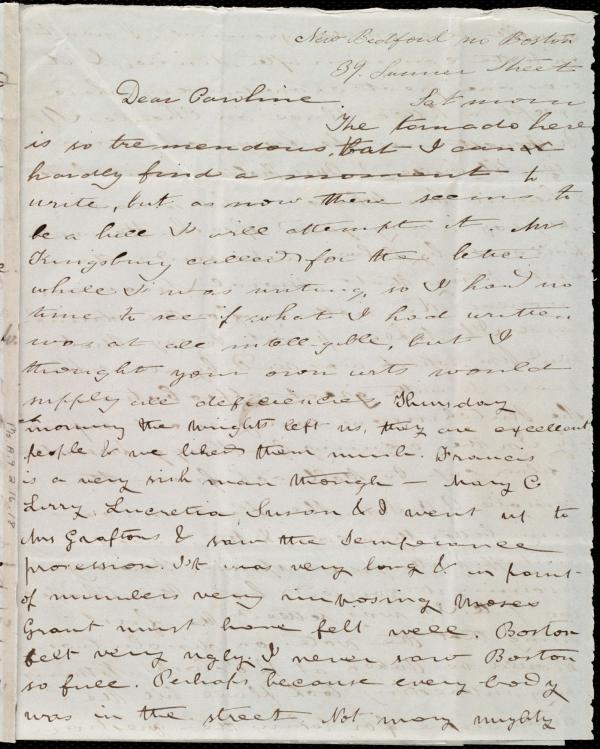 New Bedford no Boston
39. Sumner Street
Dear Caroline. Sat morn
The tornado here
is so tremendous, that I can
hardly find a moment to
write, but as now there seems to
be a lull I will attempt it. Mr
Kingsbury called for the letter
while I was writing, so I had no
time to see if what I had written
was at all intelligible, but I
thought your own wits would
supply all deficiencies. Thursday
morning the Wrights left us, they are excellent
people & we liked them much. Francis
is a very sick man though — Mary C
Lucretia, Susan & I went up to
Mrs Graftons & saw the Temperance
procession. It was very long & in point
of numbers very imposing. Moses
Grant must have felt well. Boston
felt very ugly. I never saw Boston
so full. Perhaps because every body
was in the street. Not many mighty